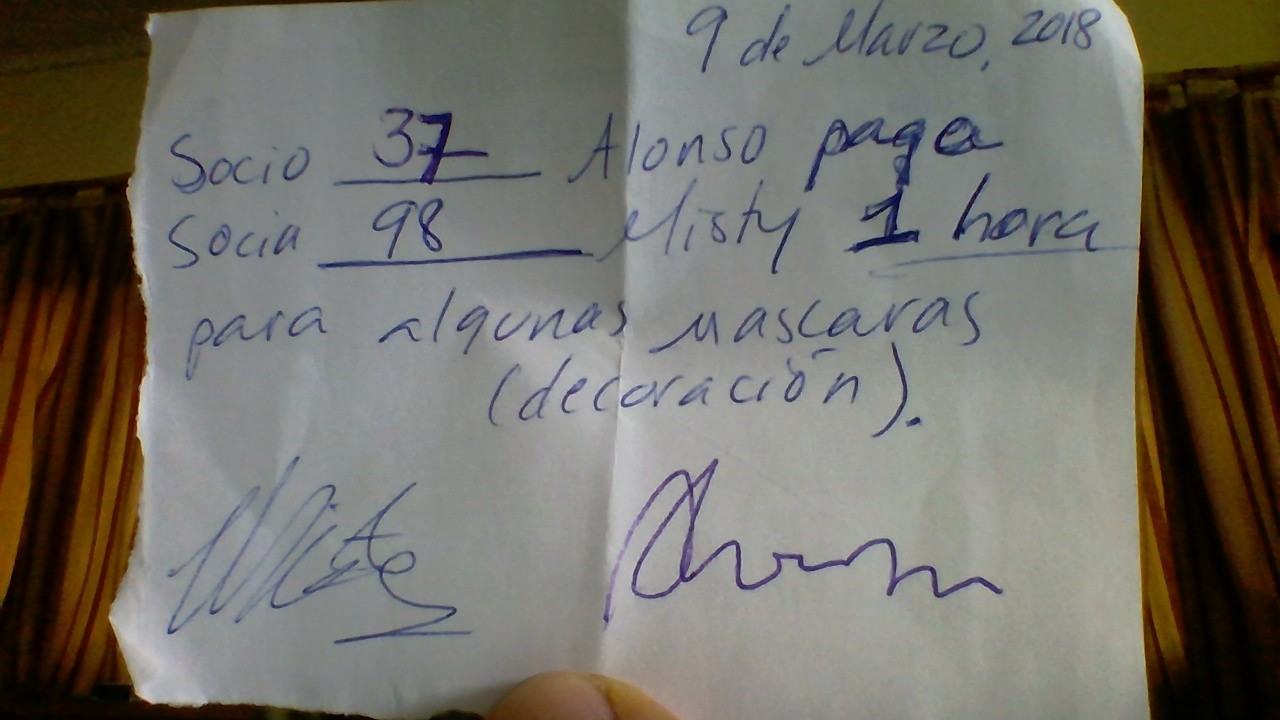 9 de Marzo, 2018
Socio 37 Alonso paga
Socia 98 Misty 1 hora
para algunas mascaras
(decoración).